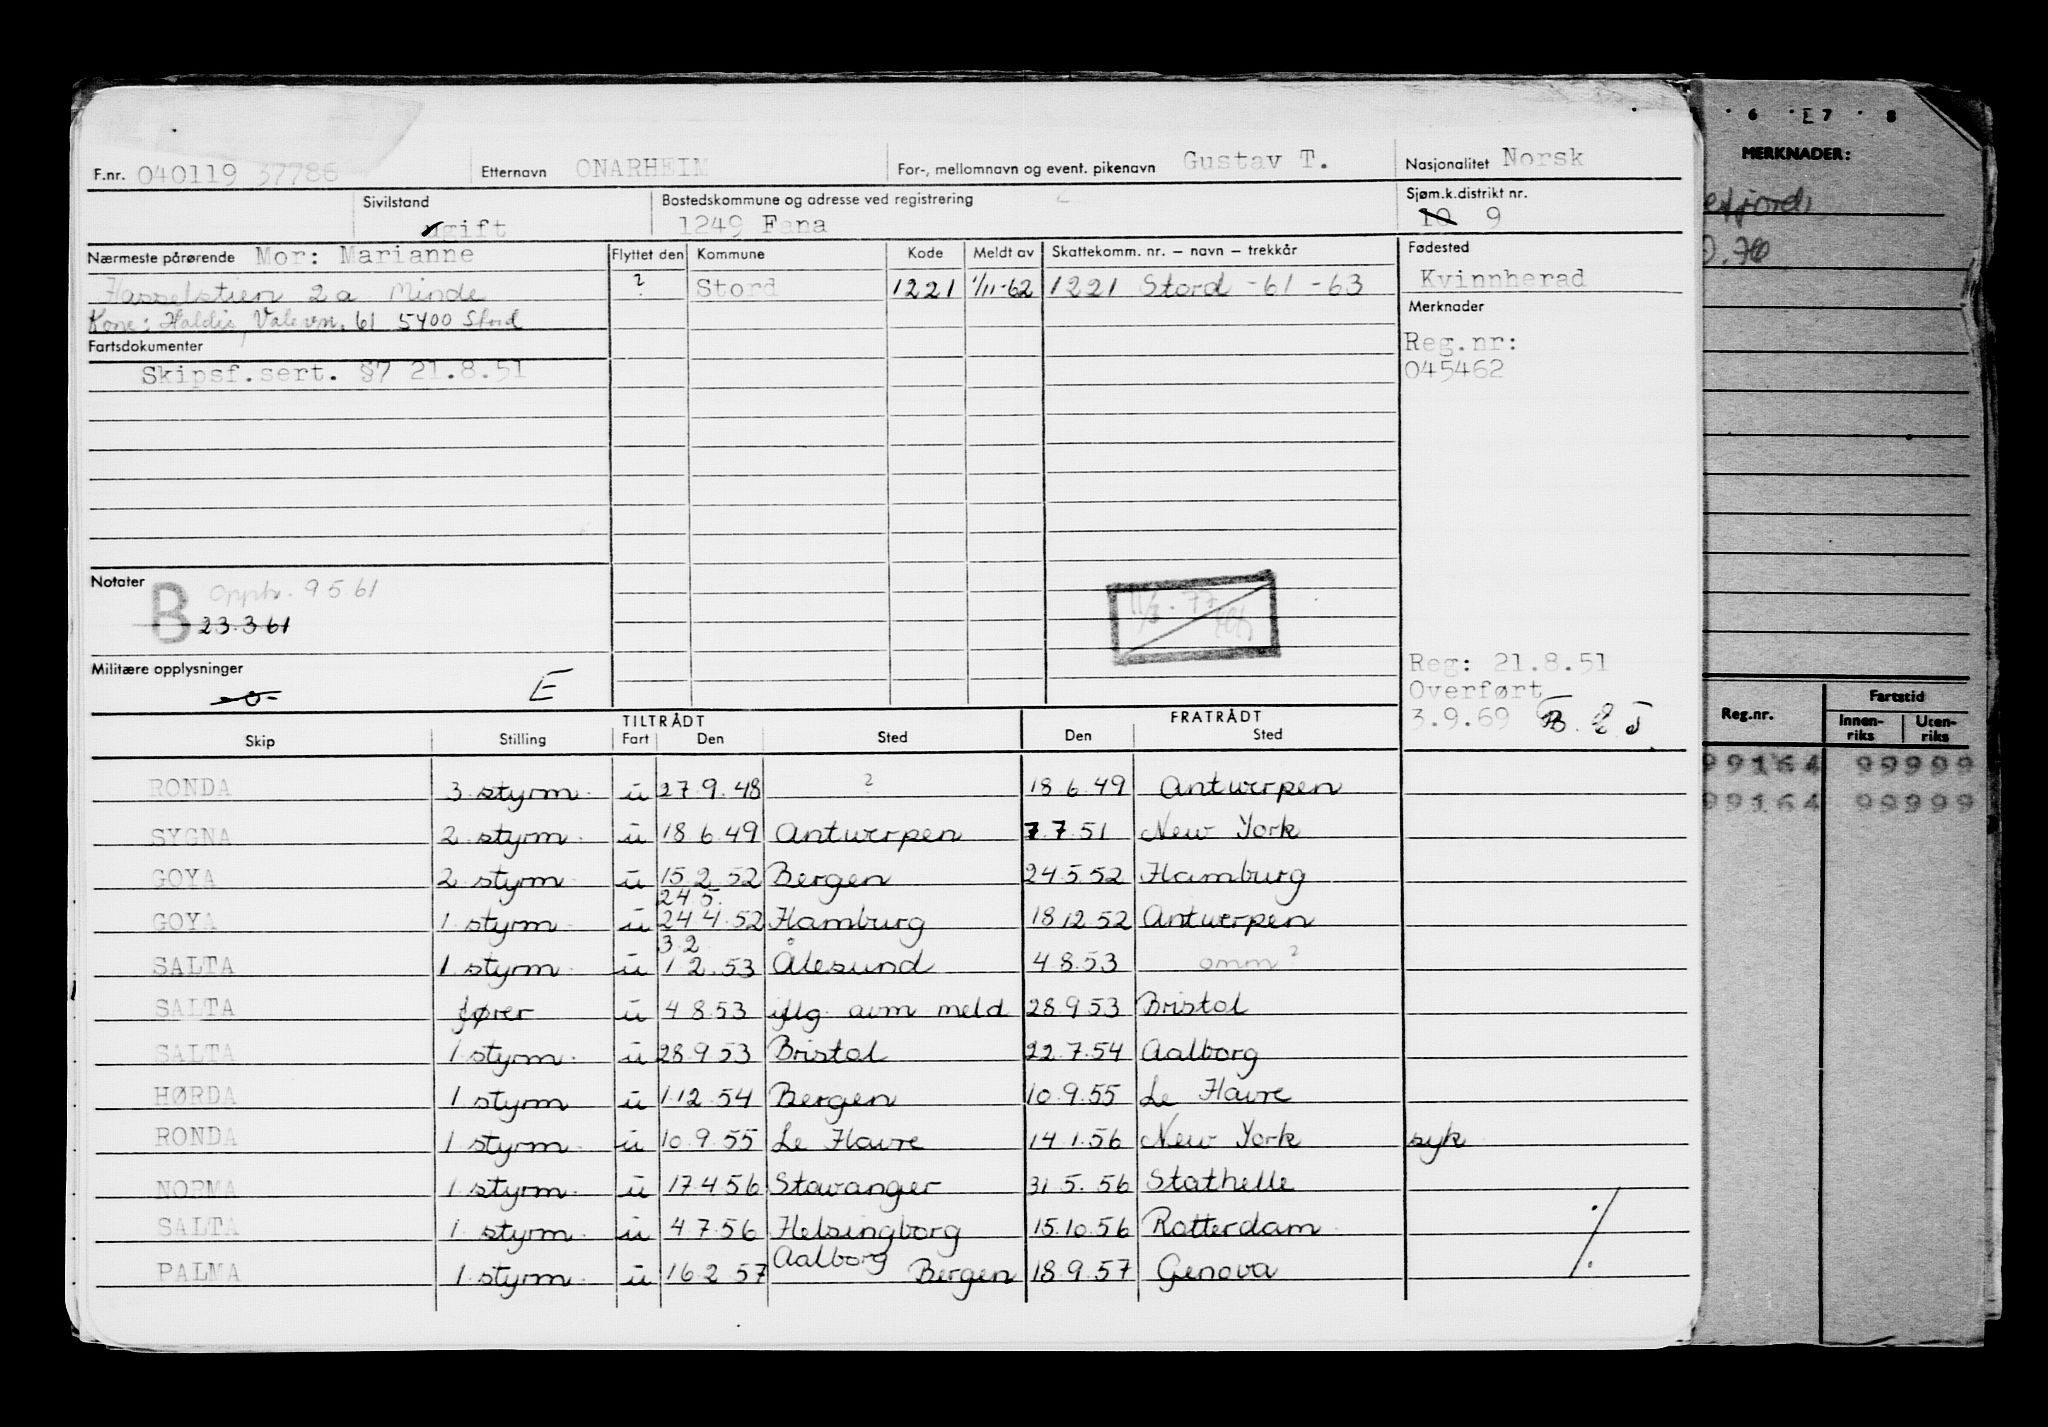 F.nr. 040119 37786 Etternavn ONARHEIM For-, mellomnavn og event. pikenavn Gustav T. Nasjonalitet Norsk
Sivilstand ugift Bostedskommune og adresse ved registrering 1249 Fana Sjøm.k.distrikt nr. 10 9
Nærmeste pårørende Mor: Marianne Flyttet den Kommune Kode Meldt av Skattekomm. nr. – navn – trekkår Fødested
Hasselstien 2a Minde ? Stord 1221 1/11-62 1221 Stord -61 -63 Kvinnherad
Kone: Haldis, Valevn. 61 5400 Stord Merknader
Fartsdokumenter Reg.nr:
Skipsf.sert. §7 21.8.51 045462
Notater B Oppt. 9 5 61
23.3 61
11/3. 77
Militære opplysninger
-o- E
Reg: 21.8.51
Overført
3.9.69
TILTRÅDT FRATRÅDT
Skip Stilling Fart Den Sted Den Sted
RONDA 3 styrm. u 27.9.48 ? 18.6.49 Antwerpen
SYGNA 2 styrm. u 18 6.49 Antwerpen 7.7.51 New York
GOYA 2 styrm. u 15 2 52 Bergen 24.5.52 Hamburg
24 5.
GOYA 1 styrm. u 24 4.52 Hamburg 18 12 52 Antwerpen
3 2
SALTA 1 styrm. u 1 2.53 Ålesund 4 8.53 omm ?
SALTA fører u 4 8.53 iflg avm meld 28.9 53 Bristol
SALTA 1 styrm. u 28.9 53 Bristol 22.7.54 Aalborg
HØRDA 1 styrm. u 1.12.54 Bergen 10.9.55 Le Havre
RONDA 1 styrm. u 10.9.55 Le Havre 14.1.56 New York syk
NORMA 1 styrm. u 17.4 56 Stavanger 31.5.56 Stathelle
SALTA 1 styrm. u 4 7.56 Helsingborg 15.10.56 Rotterdam
Aalborg
PALMA 1 styrm. u 16.2 57 Bergen 18.9.57 Genova
6 7 8
MERKNADER:
Reg.nr. Fartstid
Innen-riks Uten-riks
99164 99999
99164 99999